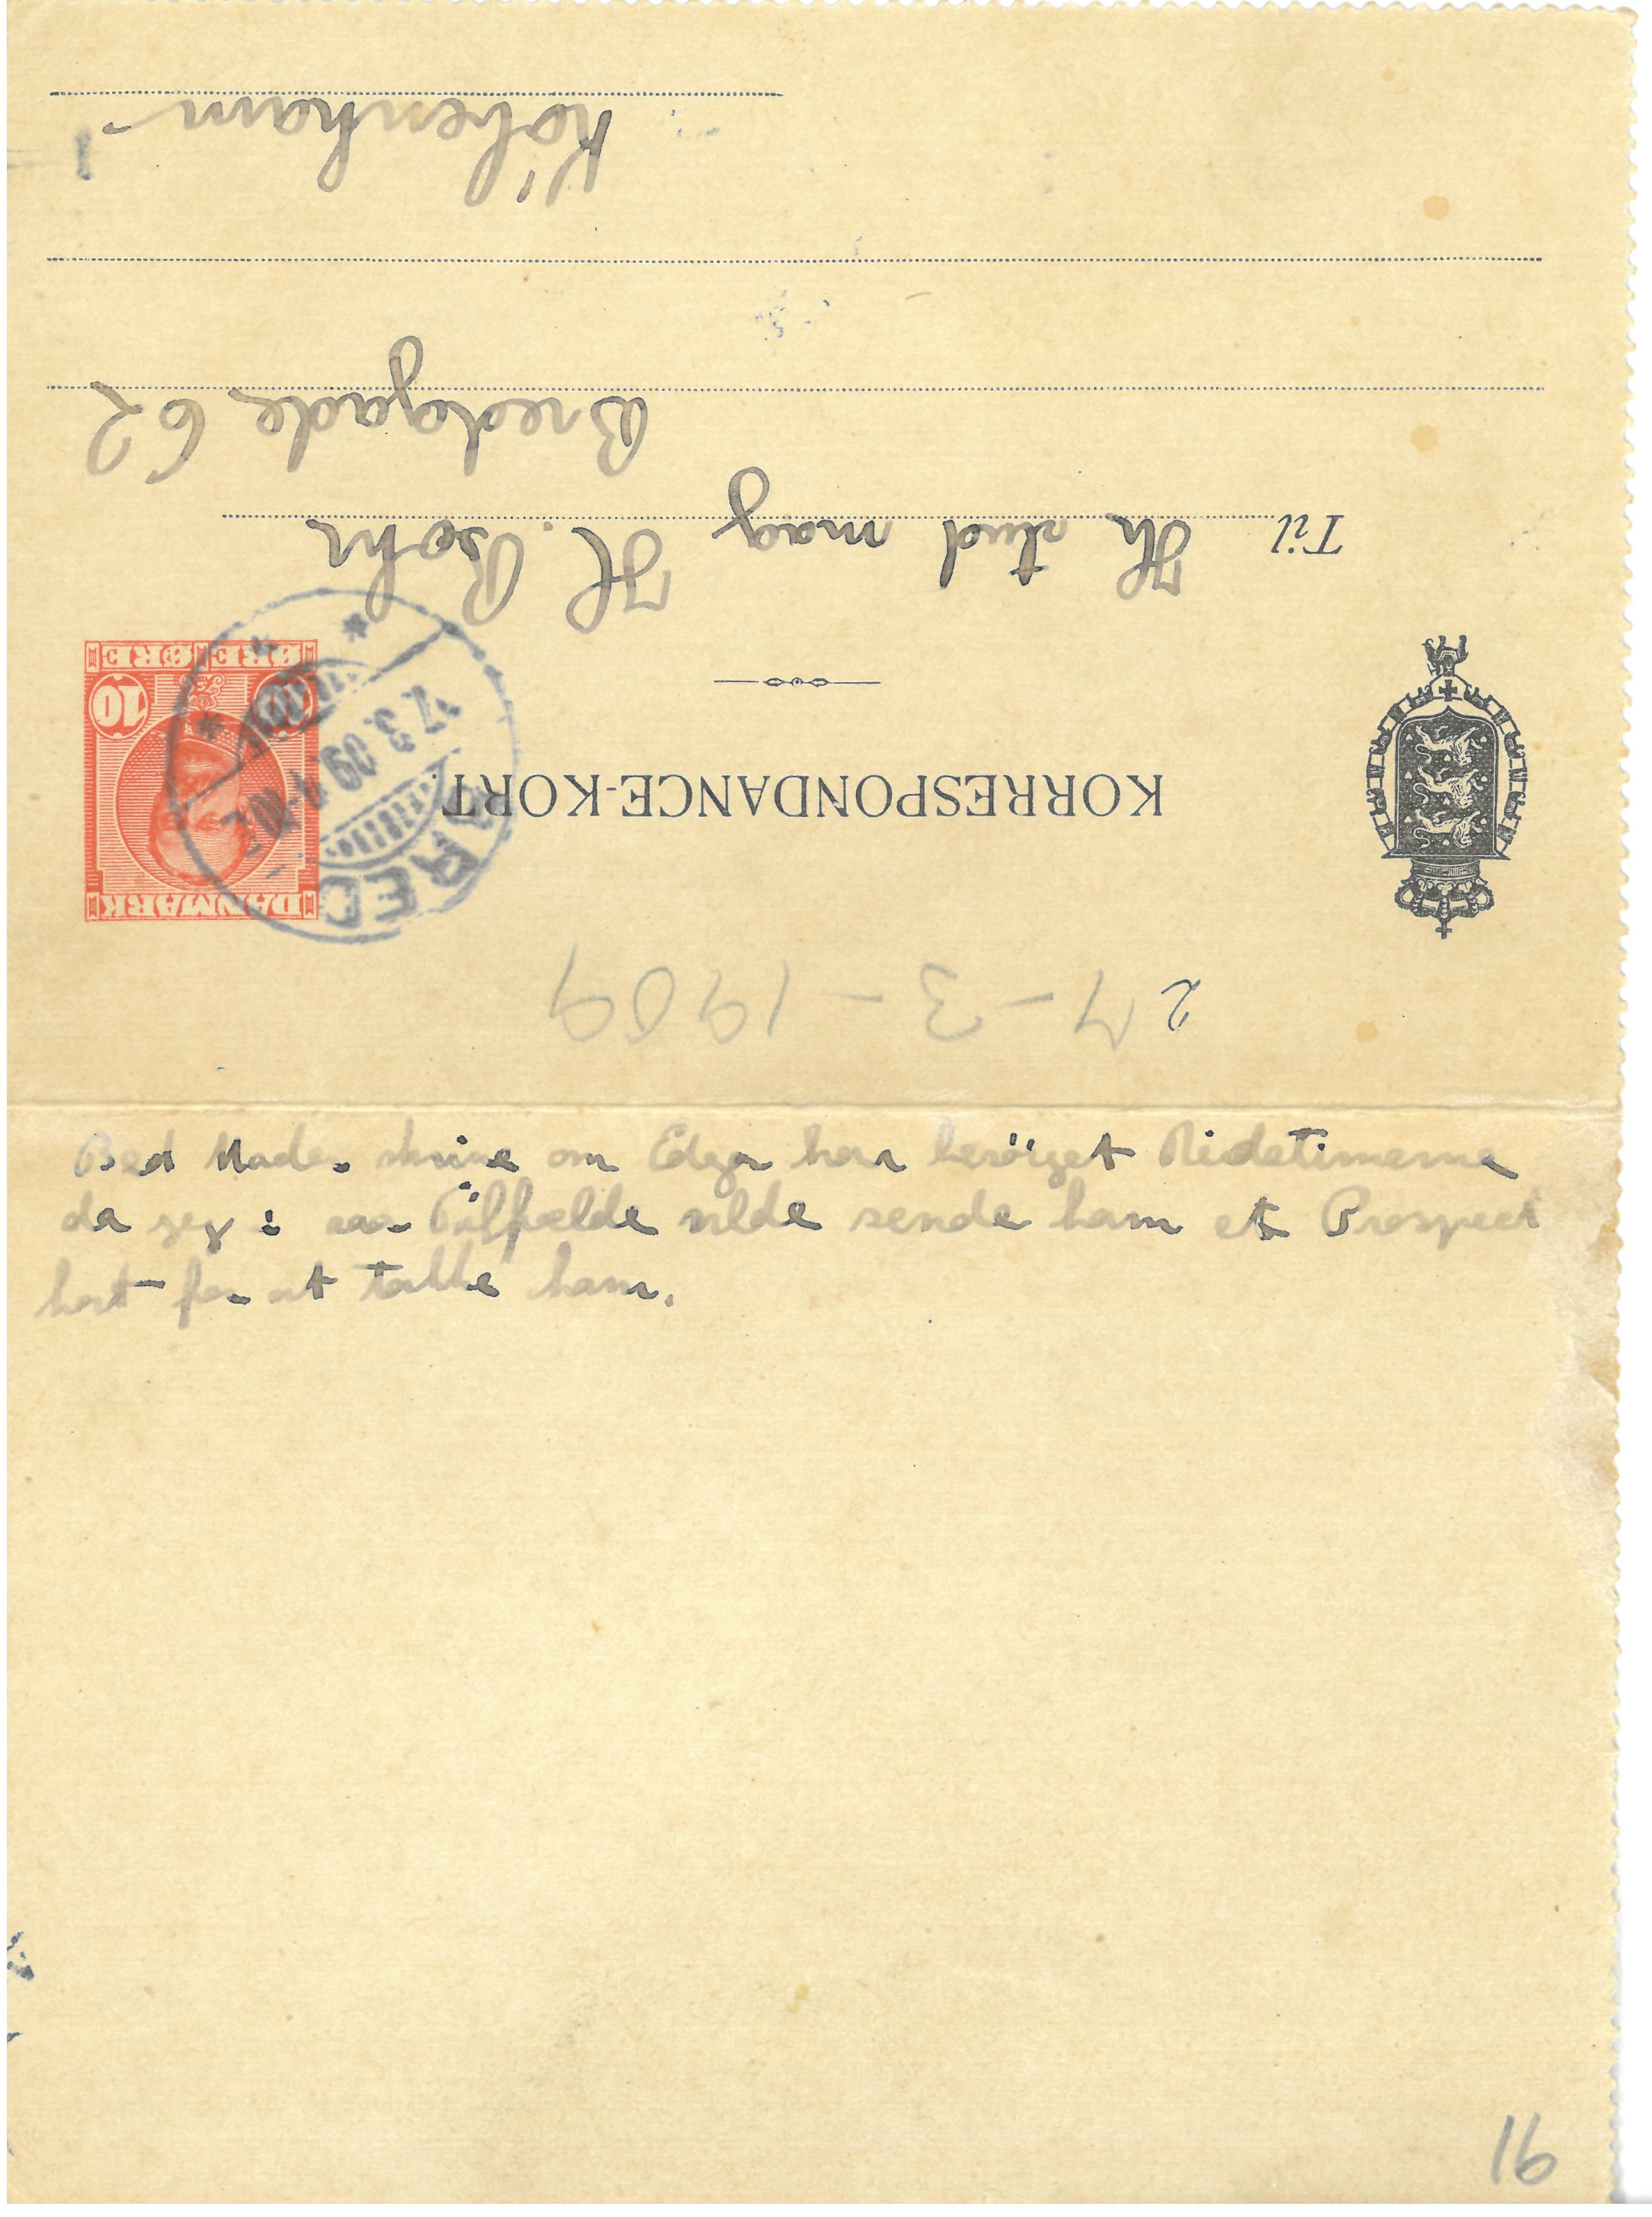 27-3-1909
KORRESPONDANCE-KORT.
DANMARK
10 10
ØRE ØRE
BRED
17 3 09
Til Hr stud mag H. Bohr
Bredgade 62
København
Bed Moder skrive om Edgar har besörget Ridetimerne
da jeg i saa Tilfælde vilde sende ham et Prospect
kort for at takke ham.
16